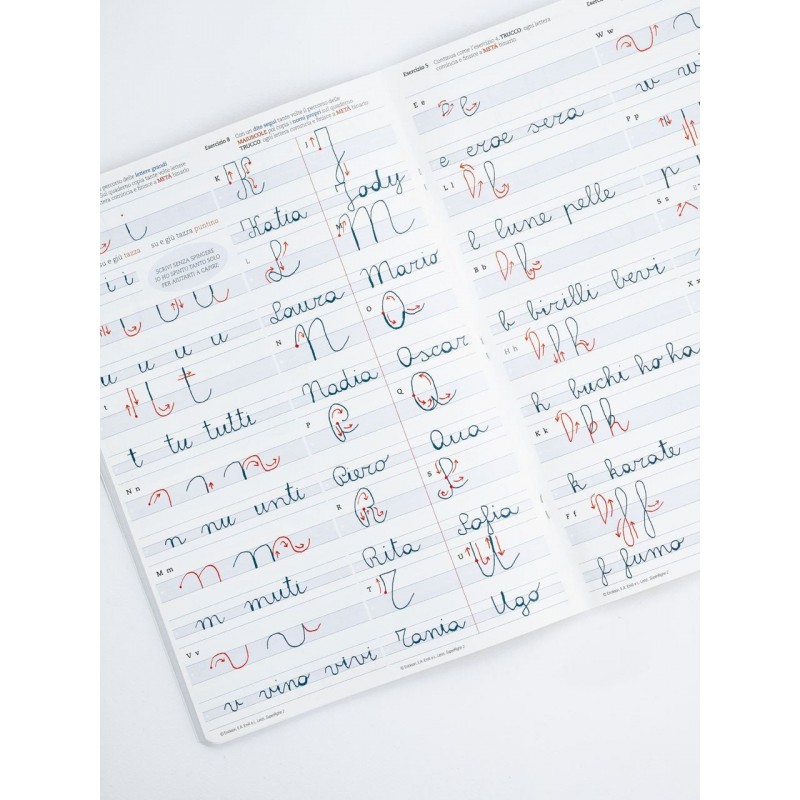 percorso delle lettere grandi
sul quaderno copia tante volte lettere
lettera comincia e finisce a META binario
i
su e giù tazza su e giù tazza puntino
i i
SCRIVI SENZA SPINGERE
IO HO SPINTO TANTO SOLO
PER AIUTARTI A CAPIRE
u
u u u u u
t
t tu tutti
N n
n nu unti
M m
m muti
V v
v vino vivi
Esercizio 8 Con un dito segui tante volte il percorso delle
MAIUSCOLE poi copia i nomi propri sul quaderno.
TRUCCO: ogni lettera comincia e finisce a META binario
K K
J J
Katia
Jody
L L
M M
Laura
Mario
N N
O O
Nadia
Oscar
P P
Q Q
Piero
Qua
R R
S S
Rita
Sofia
T T
U U
Tania
Ugo
Esercizio 5 Continua come l'esercizio 4. TRUCCO: ogni lettera
comincia e finisce a META binario
E e
e eroe sera
L l
l lune pelle
B b
b birilli bevi
H h
h buchi ho ha
K k
k karate
F f
f fumo
W w
w wi
P p
p
S s
X x